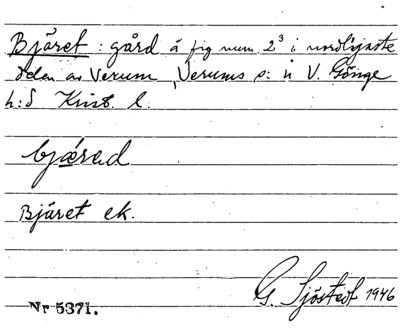 Bjäret : gård å fig num 2³ i nordligaste
delen av Verum, Verums s:n V. Göinge
h:d Krist. l.
bjǽrad
Bjäret ek.
G. Sjöstedt 1946
Nr 5371.